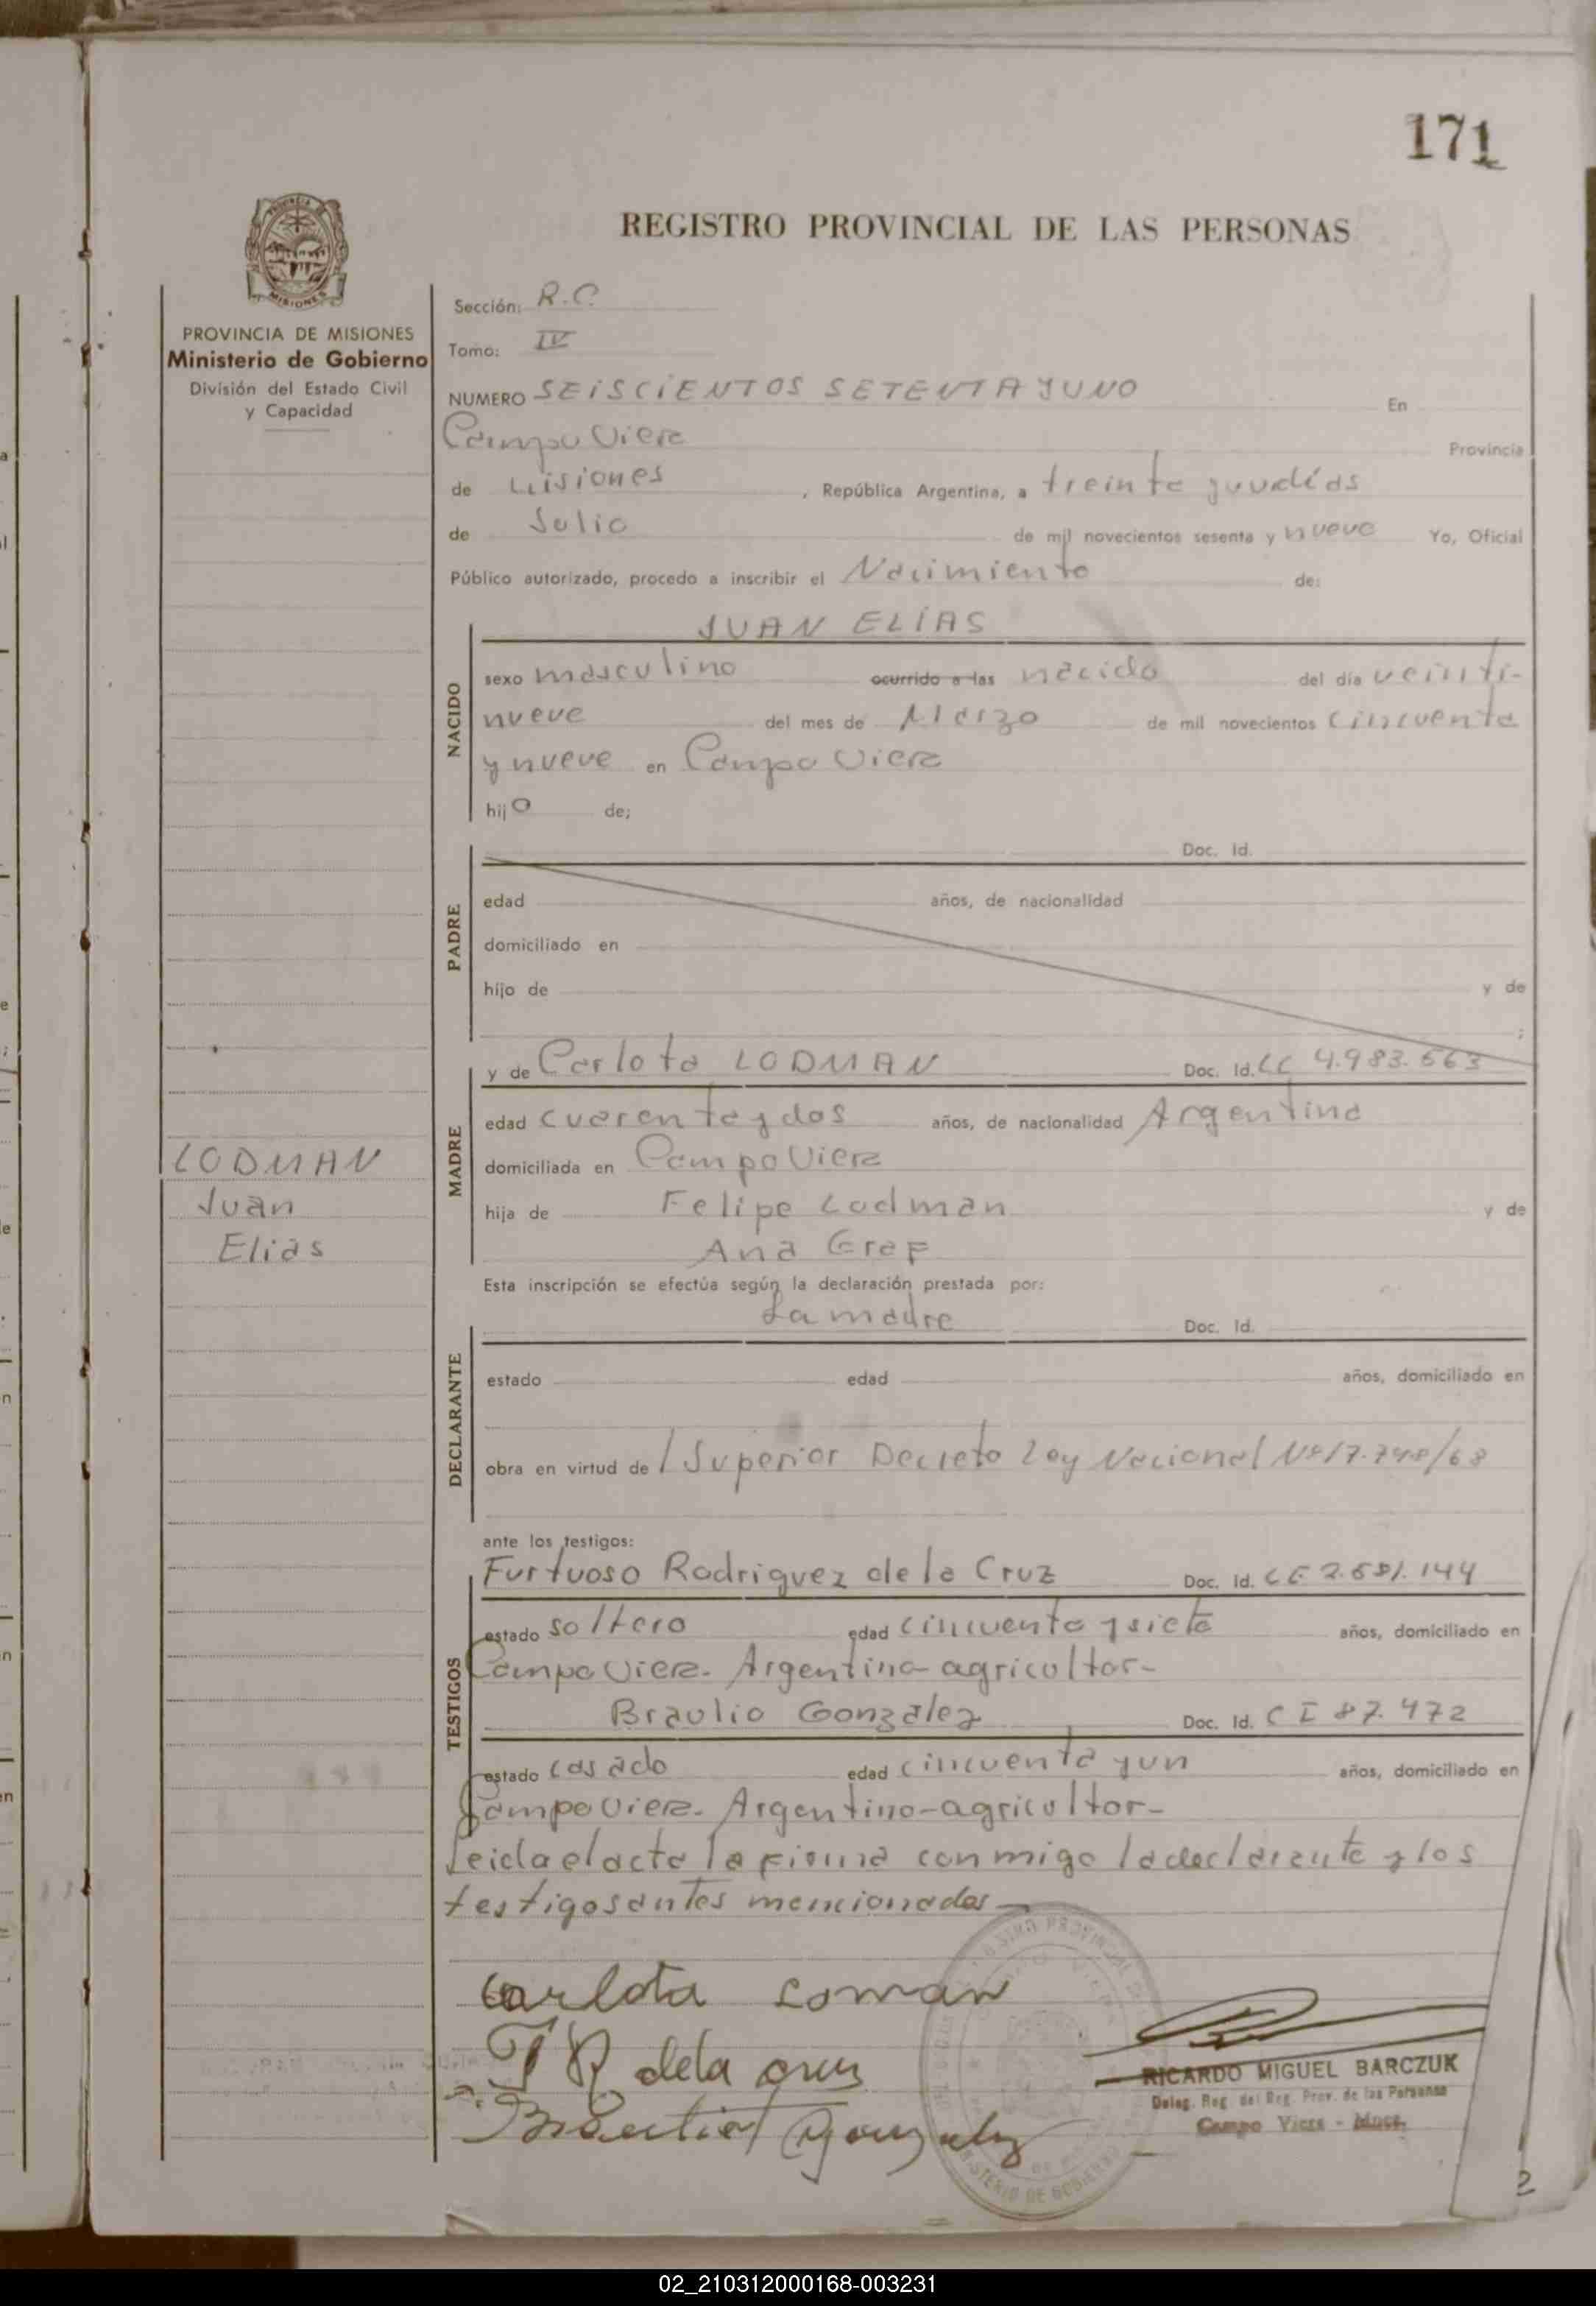 171
REGISTRO PROVINCIAL DE LAS PERSONAS
PROVINCIA DE MISIONES
Ministerio de Gobierno
División del Estado Civil
y Capacidad
Sección: R.C.
Tomo: IV
NUMERO SEISCIENTOS SETENTA Y UNO En
Campo Viera Provincia
de Misiones , República Argentina, a treinta y un días
de Julio de mil novecientos sesenta y nueve Yo, Oficial
Público autorizado, procedo a inscribir el Nacimiento de:
JUAN ELIAS
NACIDO
sexo masculino ocurrido a las nacido del día veinti-
nueve del mes de Marzo de mil novecientos cincuenta
y nueve en Campo Viera
hijo de;
PADRE
Doc. Id.
edad años, de nacionalidad
domiciliado en
hijo de y de
;
MADRE
y de Carlota LODMAN Doc. Id. LC 4.983.663
edad cuarenta y dos años, de nacionalidad Argentina
domiciliada en Campo Viera
LODMAN
Juan
Elias
hija de Felipe Lodman y de
Ana Graf
Esta inscripción se efectúa según la declaración prestada por:
La madre Doc. Id.
DECLARANTE
estado edad años, domiciliado en
obra en virtud de / Superior Decreto Ley Nacional Nº 17.798/68
ante los testigos:
TESTIGOS
Furtuoso Rodriguez de la Cruz Doc. Id. 144
estado soltero edad cincuenta y siete años, domiciliado en
Campo Viera. Argentino-agricultor-
Braulio González Doc. Id. CI 87.472
estado casado edad cincuenta y un años, domiciliado en
Campo Viera. Argentino-agricultor-
Leida el acta la firma conmigo la declarante y los
testigos antes mencionados
Carlota Loman
R dela Cruz
Gonzalez
RICARDO MIGUEL BARCZUK
Deleg. Reg. del Reg. Prov. de las Personas
Campo Viera - Mnes.
MINISTERIO DE GOBIERNO
2
02_210312000168-003231